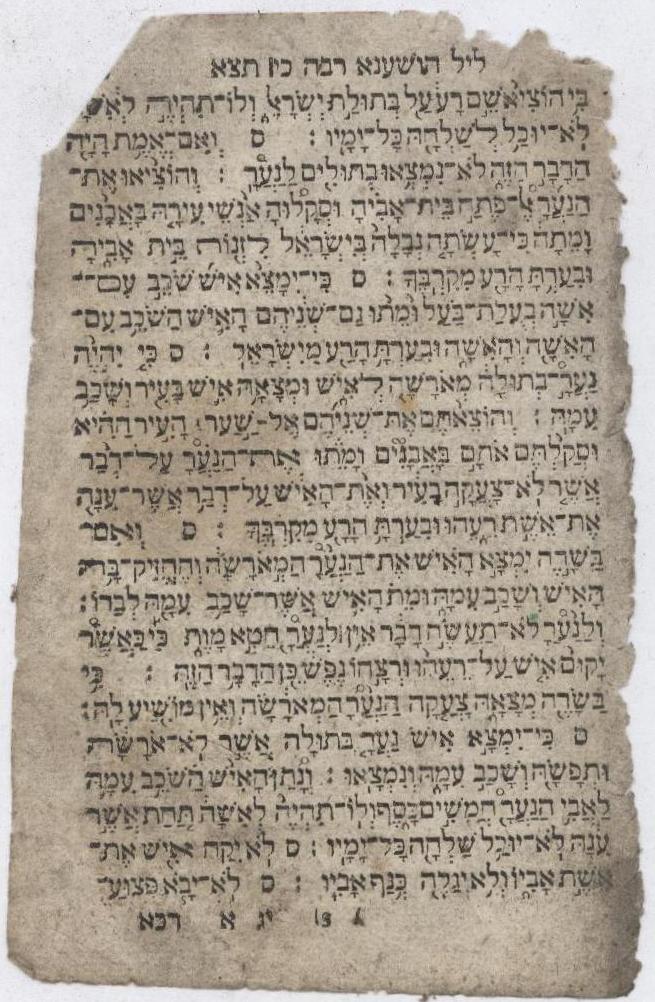 ליל הושענא רבה כי תצא
כִּי הוֹצִיא שֵׁם רָע עַל בְּתוּלַת יִשְׂרָאֵל וְלוֹ־תִהְיֶה לְאִשָּׁה
לֹא־יוּכַל לְשַׁלְּחָהּ כָּל־יָמָיו : ס וְאִם־אֱמֶת הָיָה
הַדָּבָר הַזֶּה לֹא־נִמְצְאוּ בְתוּלִים לַנַּעֲרָ : וְהוֹצִיאוּ אֶת־
הַנַּעֲרָ אֶל־פֶּתַח בֵּית־אָבִיהָ וּסְקָלוּהָ אַנְשֵׁי עִירָהּ בָּאֲבָנִים
וָמֵתָה כִּי־עָשְׂתָה נְבָלָה בְּיִשְׂרָאֵל לִזְנוֹת בֵּית אָבִיהָ
וּבִעַרְתָּ הָרָע מִקִּרְבֶּךָ : ס כִּי־יִמָּצֵא אִישׁ שֹׁכֵב עִם־
אִשָּׁה בְעֻלַת־בַּעַל וּמֵתוּ גַּם־שְׁנֵיהֶם הָאִישׁ הַשֹּׁכֵב עִם־
הָאִשָּׁה וְהָאִשָּׁה וּבִעַרְתָּ הָרָע מִיִּשְׂרָאֵל : ס כִּי יִהְיֶה
נַעֲרָ בְתוּלָה מְאֹרָשָׂה לְאִישׁ וּמְצָאָהּ אִישׁ בָּעִיר וְשָׁכַב
עִמָּהּ : וְהוֹצֵאתֶם אֶת־שְׁנֵיהֶם אֶל־שַׁעַר הָעִיר הַהִיא
וּסְקַלְתֶּם אֹתָם בָּאֲבָנִים וָמֵתוּ אֶת־הַנַּעֲרָ עַל־דְּבַר
אֲשֶׁר לֹא־צָעֲקָה בָעִיר וְאֶת־הָאִישׁ עַל־דְּבַר אֲשֶׁר־עִנָּה
אֶת־אֵשֶׁת רֵעֵהוּ וּבִעַרְתָּ הָרָע מִקִּרְבֶּךָ : ס וְאִם־
בַּשָּׂדֶה יִמְצָא הָאִישׁ אֶת־הַנַּעֲרָ הַמְאֹרָשָׂה וְהֶחֱזִיק־בָּהּ
הָאִישׁ וְשָׁכַב עִמָּהּ וּמֵת הָאִישׁ אֲשֶׁר־שָׁכַב עִמָּהּ לְבַדּוֹ :
וְלַנַּעֲרָ לֹא־תַעֲשֶׂה דָבָר אֵין לַנַּעֲרָ חֵטְא מָוֶת כִּי כַּאֲשֶׁר
יָקוּם אִישׁ עַל־רֵעֵהוּ וּרְצָחוֹ נֶפֶשׁ כֵּן הַדָּבָר הַזֶּה : כִּי
בַשָּׂדֶה מְצָאָהּ צָעֲקָה הַנַּעֲרָ הַמְאֹרָשָׂה וְאֵין מוֹשִׁיעַ לָהּ :
ס כִּי־יִמְצָא אִישׁ נַעֲרָ בְתוּלָה אֲשֶׁר לֹא־אֹרָשָׂה
וּתְפָשָׂהּ וְשָׁכַב עִמָּהּ וְנִמְצָאוּ : וְנָתַן הָאִישׁ הַשֹּׁכֵב עִמָּהּ
לַאֲבִי הַנַּעֲרָ חֲמִשִּׁים כָּסֶף וְלוֹ־תִהְיֶה לְאִשָּׁה תַּחַת אֲשֶׁר
עִנָּהּ לֹא־יוּכַל שַׁלְּחָהּ כָּל־יָמָיו : ס לֹא־יִקַּח אִישׁ אֶת־
אֵשֶׁת אָבִיו וְלֹא יְגַלֶּה כְּנַף אָבִיו : ס לֹא־יָבֹא פְצוּעַ־
יג א רכא